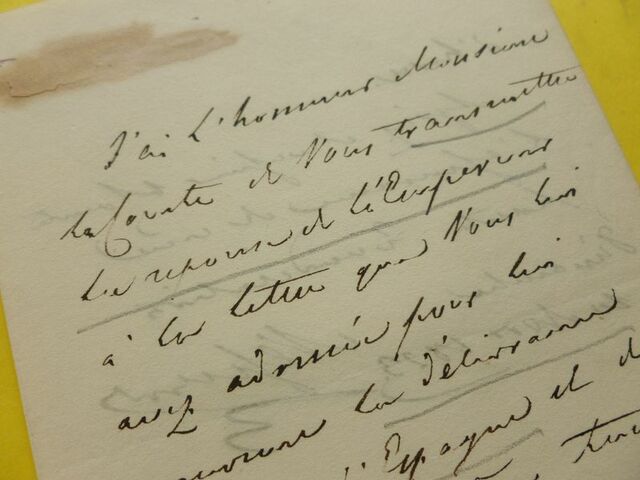 J'ai L'honneur Monsieur
le Comte de Vous transmettre
La reponse de l'Empereur
à la lettre que Vous lui
avez adressée pour lui
la délivrance
d'Espagne et d